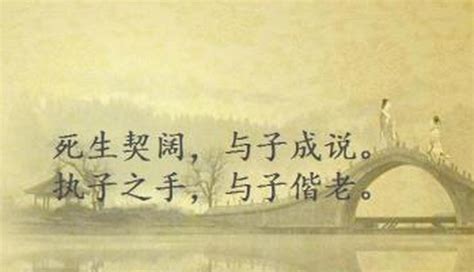 死生契阔，与子成说。
执子之手，与子偕老。